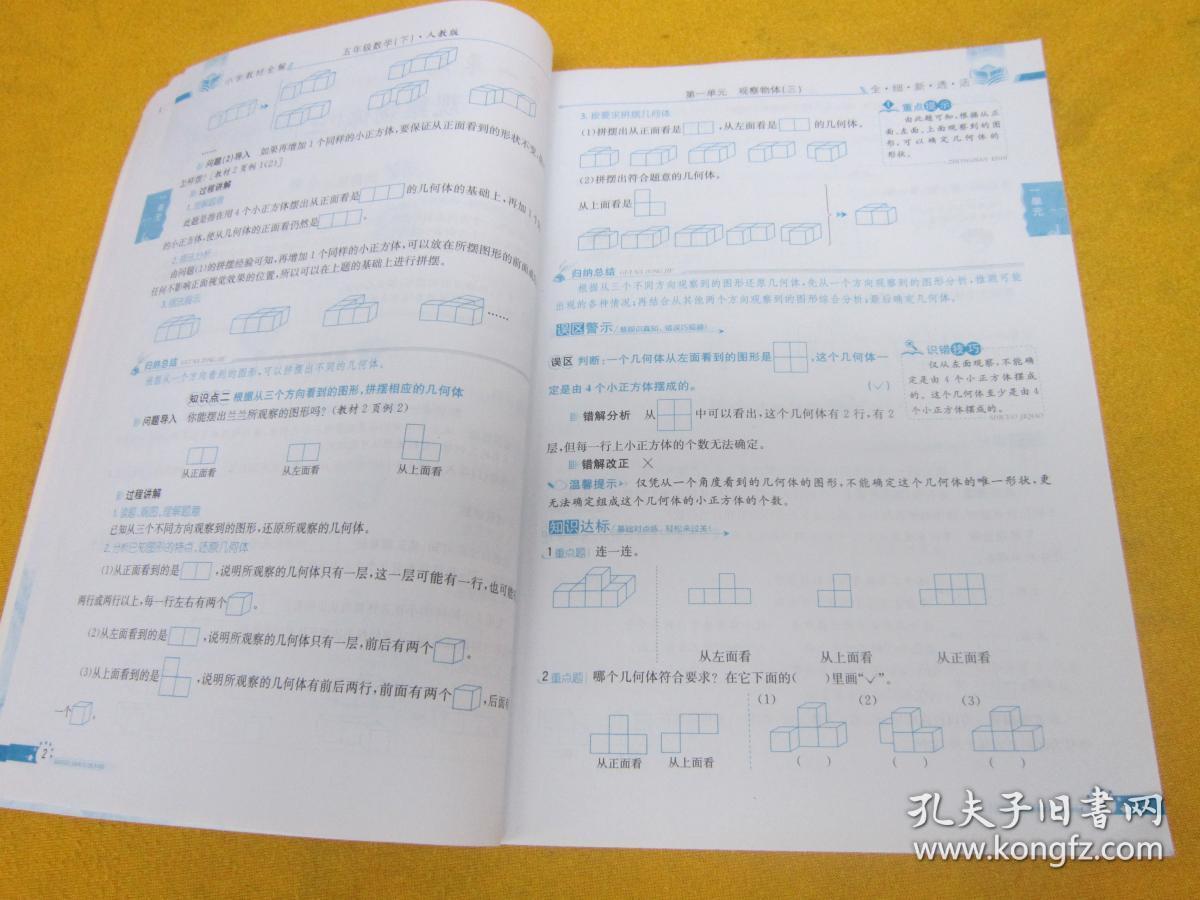 小学教材全解
五年级数学(下)·人教版
……
问题(2)导入 如果再增加1个同样的小正方体,要保证从正面看到的形状不变,
上样摆?[教材2页例1(2)]
过程讲解
1.理解题意
此题是指在用4个小正方体摆出从正面看是 的几何体的基础上,再加1个
的小正方体,使从几何体的正面看仍然是 。
2.摆法分析
由问题(1)的拼摆经验可知,再增加1个同样的小正方体,可以放在所摆图形的前面或
任何不影响正面视觉效果的位置,所以可以在上题的基础上进行拼摆。
3.摆法展示
……
归纳总结
根据从一个方向看到的图形,可以拼摆出不同的几何体。
知识点二 根据从三个方向看到的图形,拼摆相应的几何体
问题导入 你能摆出兰兰所观察的图形吗?(教材2页例2)
从正面看 从左面看 从上面看
过程讲解
1.读题、观图,理解题意
已知从三个不同方向观察到的图形,还原所观察的几何体。
2.分析已知图形的特点,还原几何体
(1)从正面看到的是 ,说明所观察的几何体只有一层,这一层可能有一行,也可能
两行或两行以上,每一行左右有两个 。
(2)从左面看到的是 ,说明所观察的几何体只有一层,前后有两个 。
(3)从上面看到的是 ,说明所观察的几何体有前后两行,前面有两个 ,后面
一个 。
2
第一单元 观察物体(三)
全·细·新·透·活
3.按要求拼摆几何体
(1)拼摆出从正面看是 ,从左面看是 的几何体。
(2)拼摆出符合题意的几何体。
从上面看是
重点提示
由此题可知,根据从正
面、左面、上面观察到的图
形,可以确定几何体的
形状。
ZHONGDIAN TISHI
一单元
一单元
归纳总结 GUI NA ZONG JIE
根据从三个不同方向观察到的图形还原几何体,先从一个方向观察到的图形分析,推测可能
出现的各种情况;再结合从其他两个方向观察到的图形综合分析;最后确定几何体。
误区警示
误区 判断:一个几何体从左面看到的图形是 ,这个几何体一
定是由4个小正方体摆成的。 (✓)
错解分析 从 中可以看出,这个几何体有2行,有2
层,但每一行上小正方体的个数无法确定。
错解改正 ×
温馨提示 仅凭从一个角度看到的几何体的图形,不能确定这个几何体的唯一形状,更
无法确定组成这个几何体的小正方体的个数。
识错技巧
仅从左面观察,不能确
定是由4个小正方体摆成
的。这个几何体至少是由4
个小正方体摆成的。
SHICUO JIQIAO
知识达标 基础对点练,轻松来过关!
1 重点题 连一连。
从左面看 从上面看 从正面看
2 重点题 哪个几何体符合要求?在它下面的( )里画“✓”。
(1) (2) (3)
从正面看 从上面看 ( ) ( ) ( )
孔夫子旧书网
www.kongfz.com